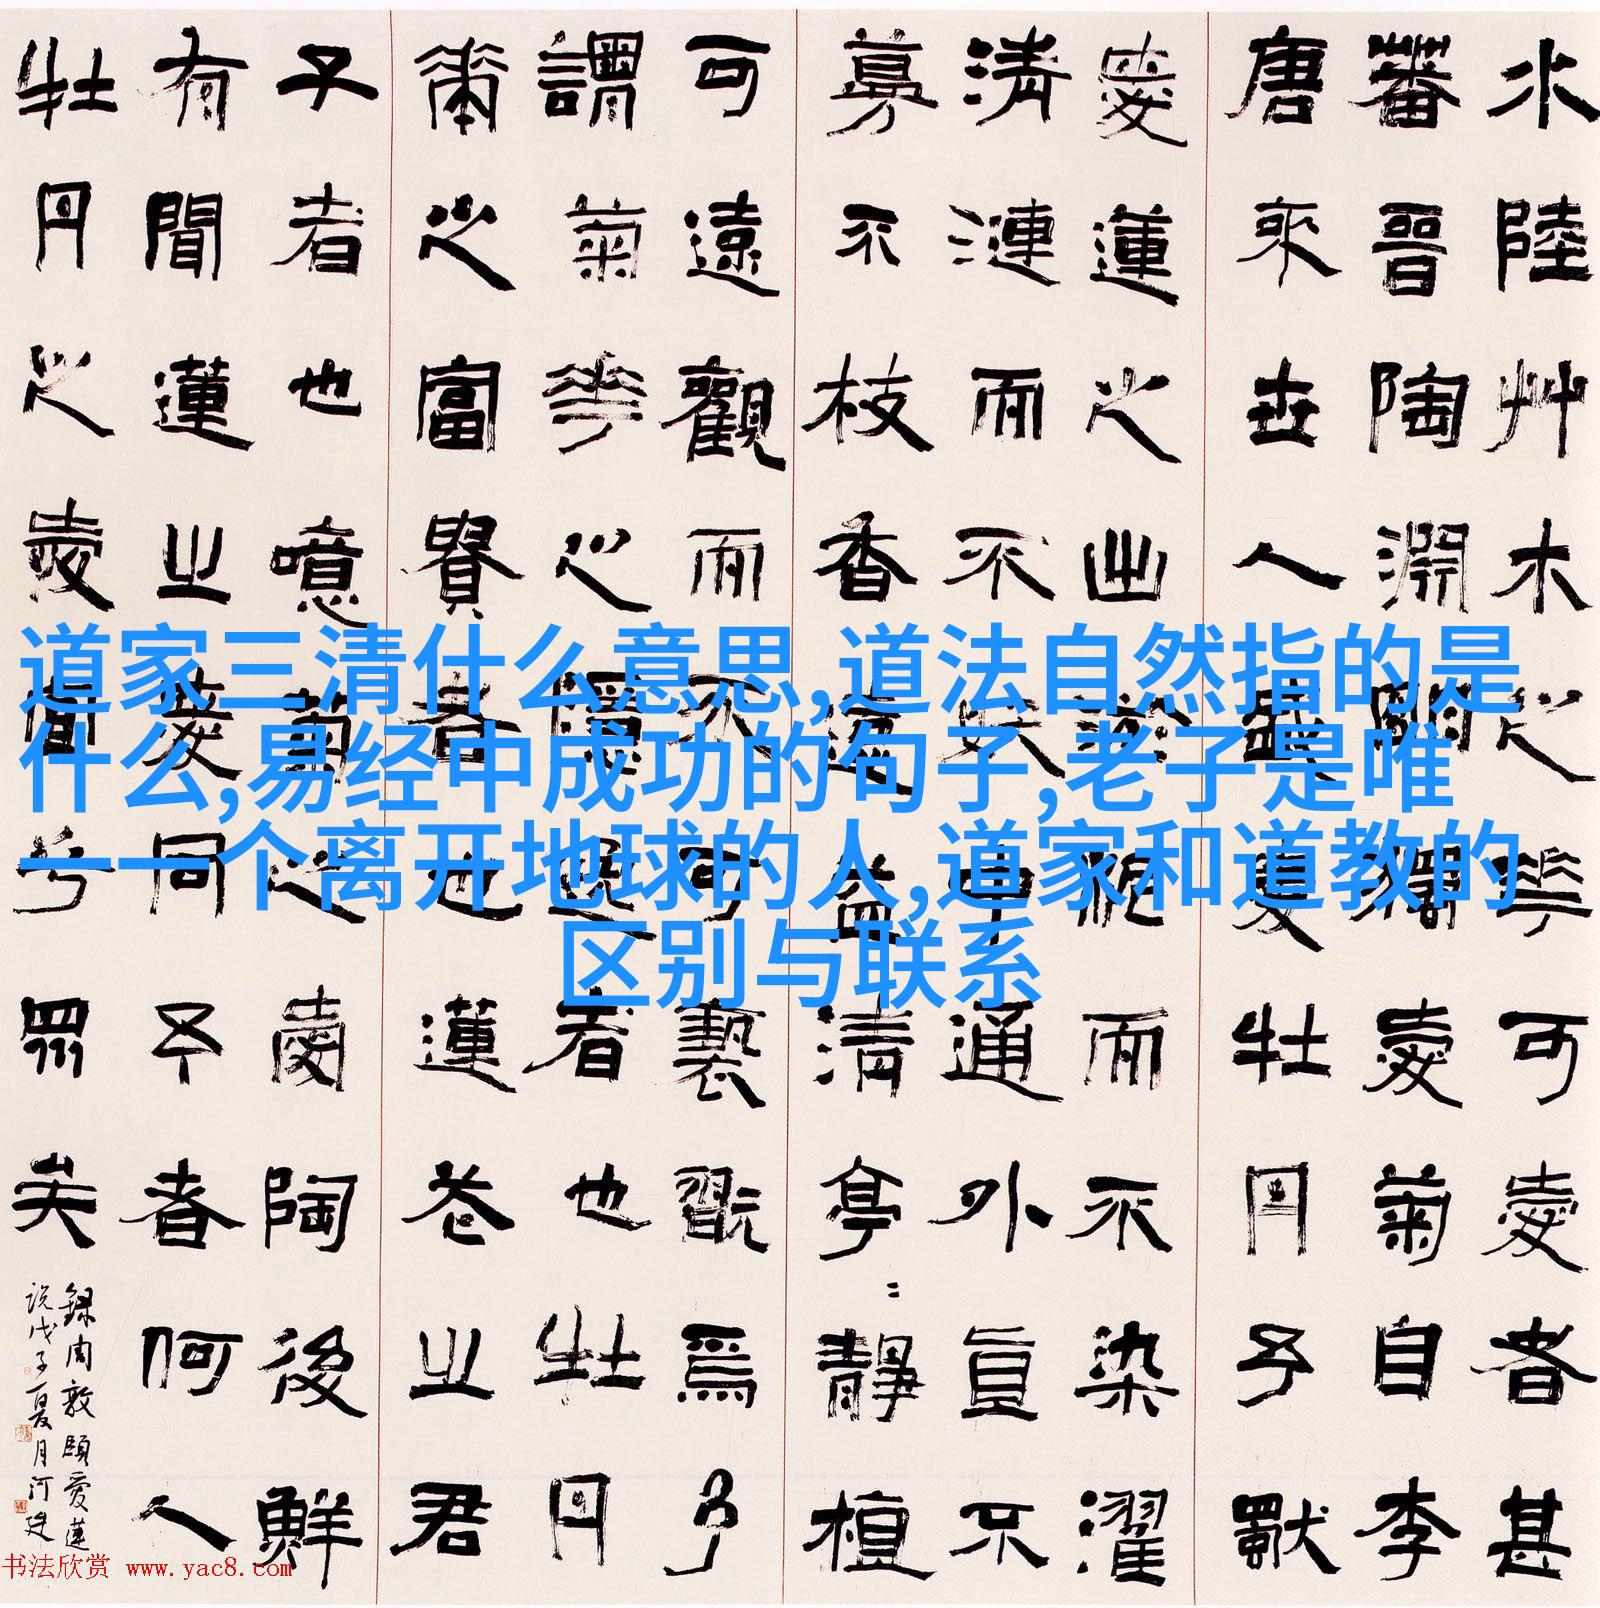 水陸艸木之花可愛者甚
蕃晉陶淵明獨愛菊自李
唐來世人盛愛牡丹予獨
愛蓮之出於泥而不染濯
清漣而不妖中通外直不
蔓不枝香遠益清亭=靜植
可遠觀而不可褻翫焉予
謂菊華之隱逸者也牡丹
華之富貴者也蓮花之君
子者也噫菊之愛陶後鮮
有聞蓮之愛同予者何人
牡丹之愛宜乎眾矣
錄周敦頤愛蓮
說戊子夏月河建
道家三清什么意思,道法自然指的是
什么,易经中成功的句子,老子是唯
一一个离开地球的人,道家和道教的
区别与联系
书法欣赏 www.yac8.com